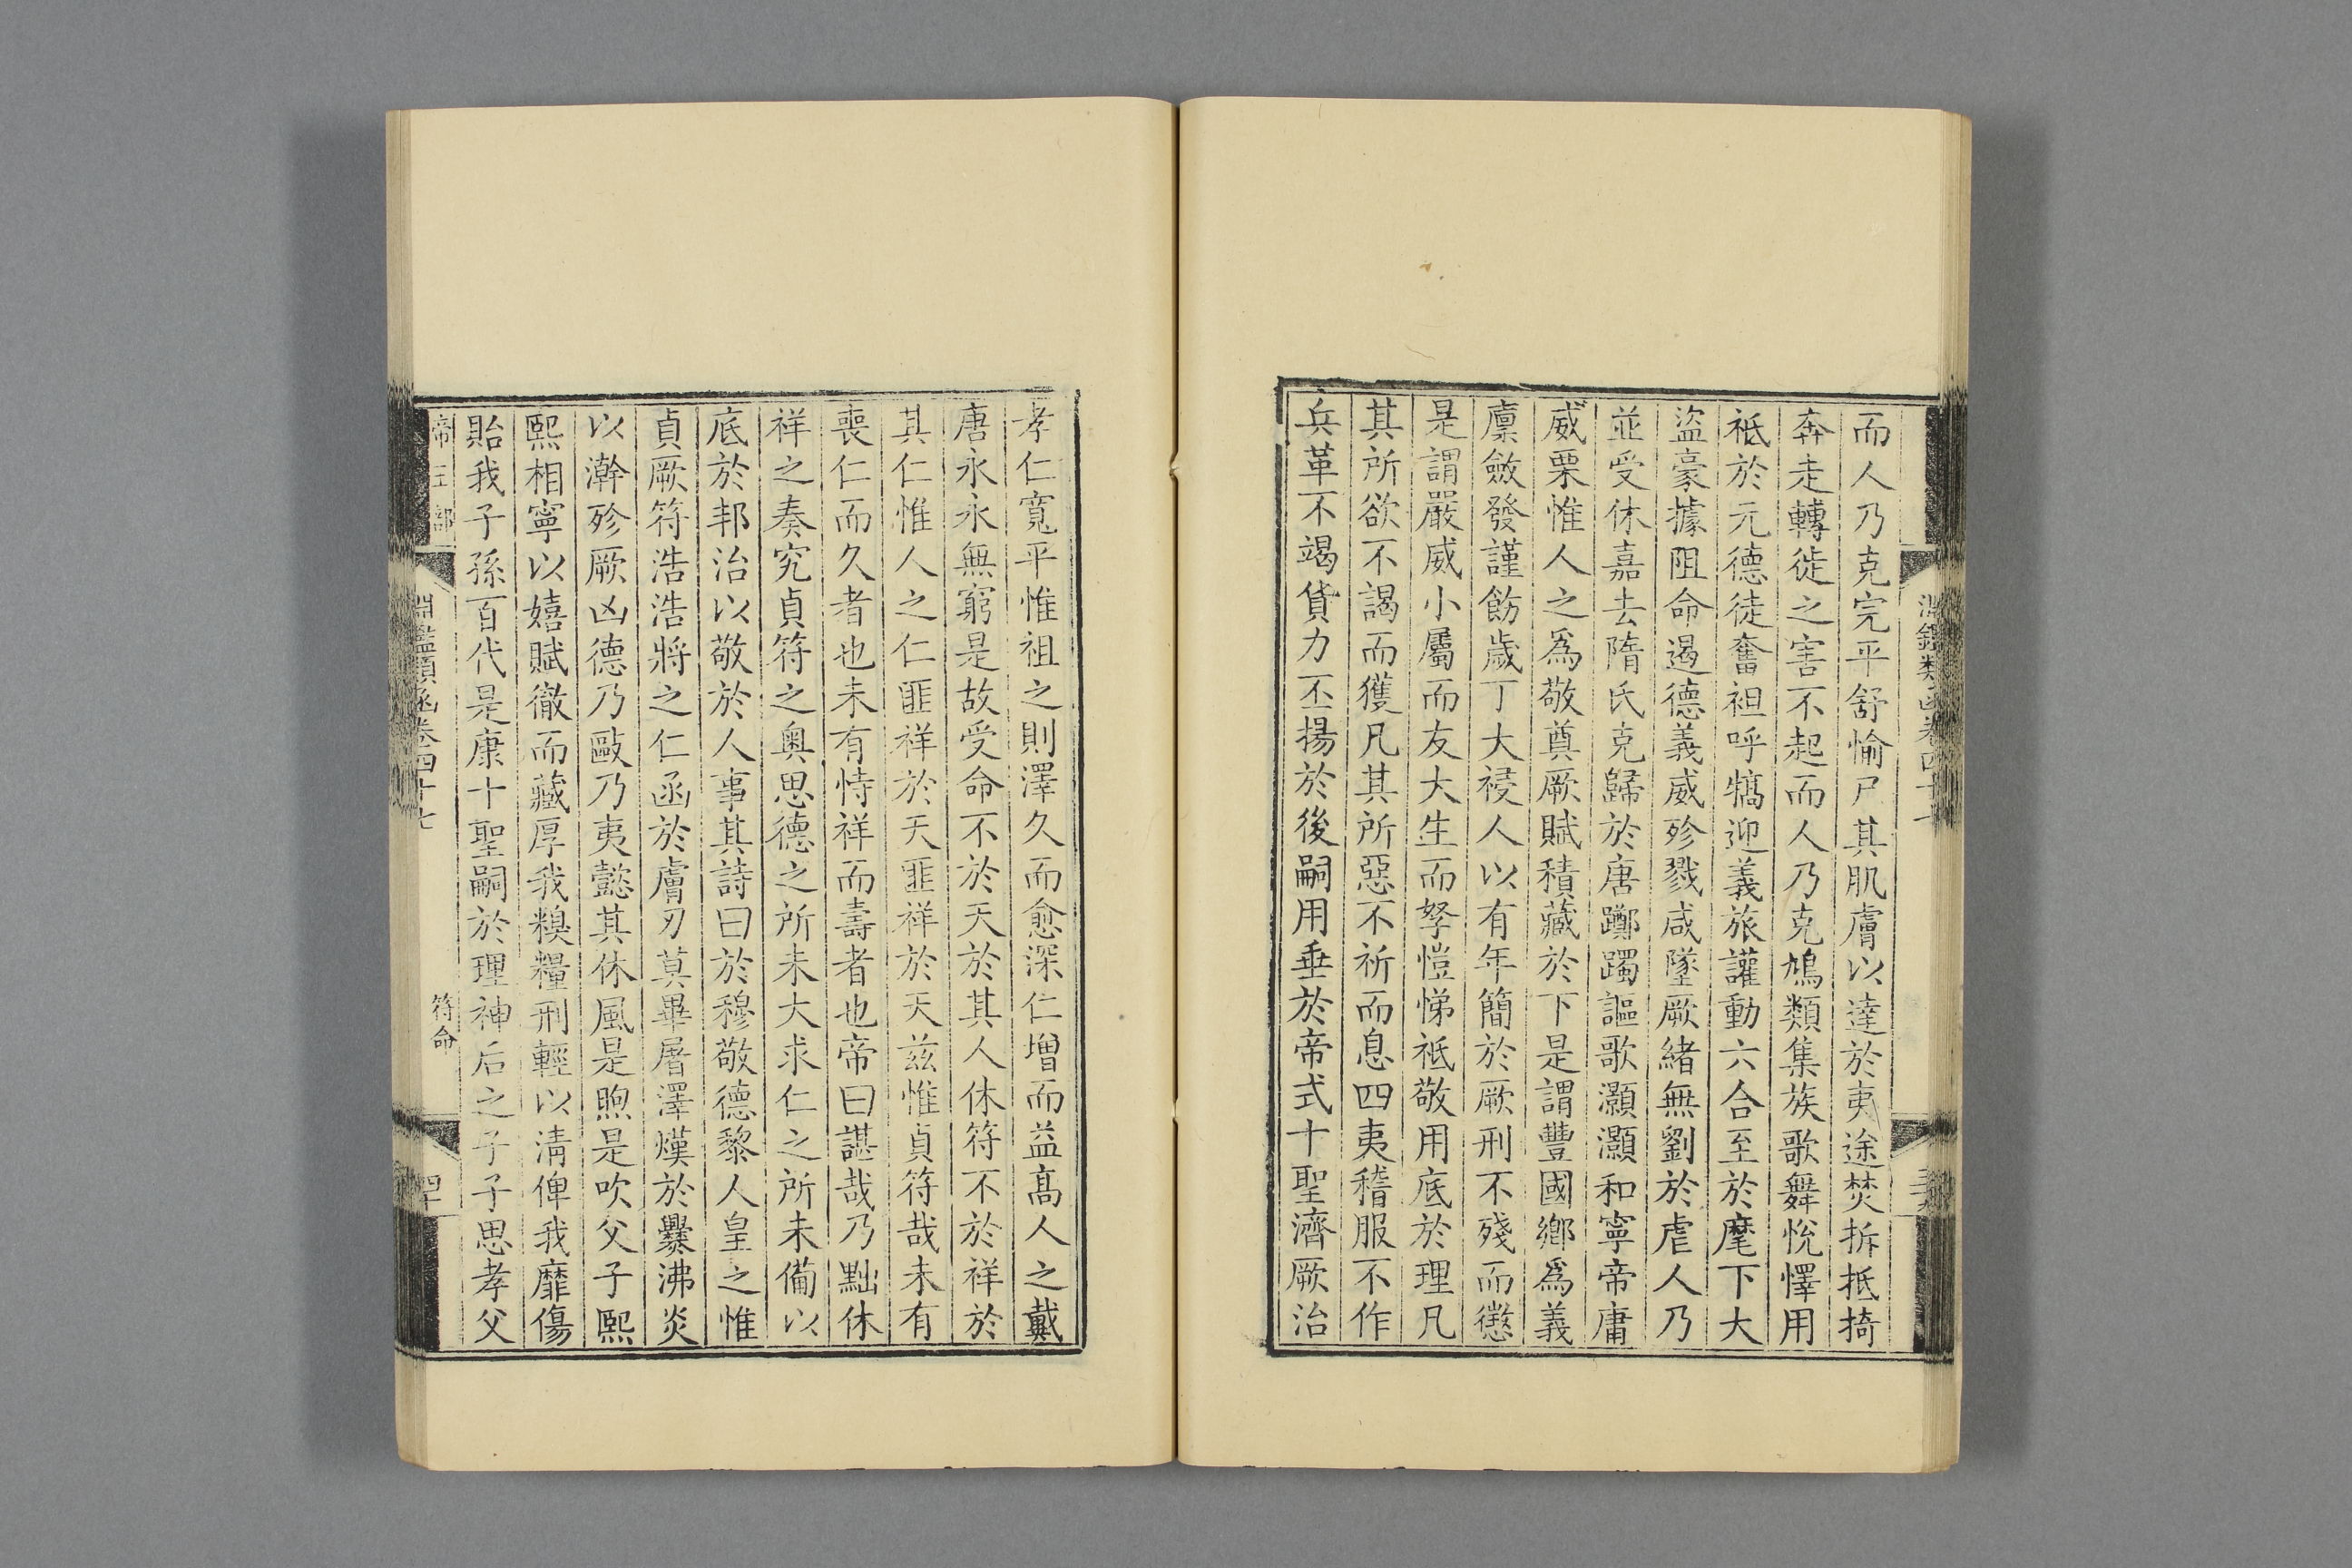 而人乃克完平舒愉尸其肌膚以達於夷途焚拆抵掎
奔走轉徙之害不起而人乃克鳩類集族歌舞悅懌用
袛於元德徒奮袒呼犒迎義旅讙動六合至於麾下大
盜豪據阻命遏德義威殄戮咸墜厥緒無劉於虐人乃
並受休嘉去隋氏克歸於唐躑躅謳歌灝灝和寧帝庸
威栗惟人之爲敬奠厥賦積藏於下是謂豐國鄉爲義
廩斂發謹飭歲丁大祲人以有年簡於厥刑不殘而懲
是謂嚴威小屬而友大生而孥愷悌袛敬用底於理凡
其所欲不謁而獲凡其所惡不祈而息四夷稽服不作
兵革不竭貨力丕揚於後嗣用垂於帝式十聖濟厥治
孝仁寬平惟祖之則澤久而愈深仁增而益高人之戴
唐永永無窮是故受命不於天於其人休符不於祥於
其仁惟人之仁匪祥於天匪祥於天茲惟貞符哉未有
喪仁而久者也未有恃祥而壽者也帝曰諶哉乃黜休
祥之奏究貞符之奧思德之所未大求仁之所未備以
底於邦治以敬於人事其詩曰於穆敬德黎人皇之惟
貞厥符浩浩將之仁函於膚刃莫畢屠澤熯於爨沸炎
以澣殄厥凶德乃毆乃夷懿其休風是煦是吹父子熙
熙相寧以嬉賦徹而藏厚我糗糧刑輕以清俾我靡傷
貽我子孫百代是康十聖嗣於理神后之子子思孝父
帝王部
淵鑑類函卷四十七
符命